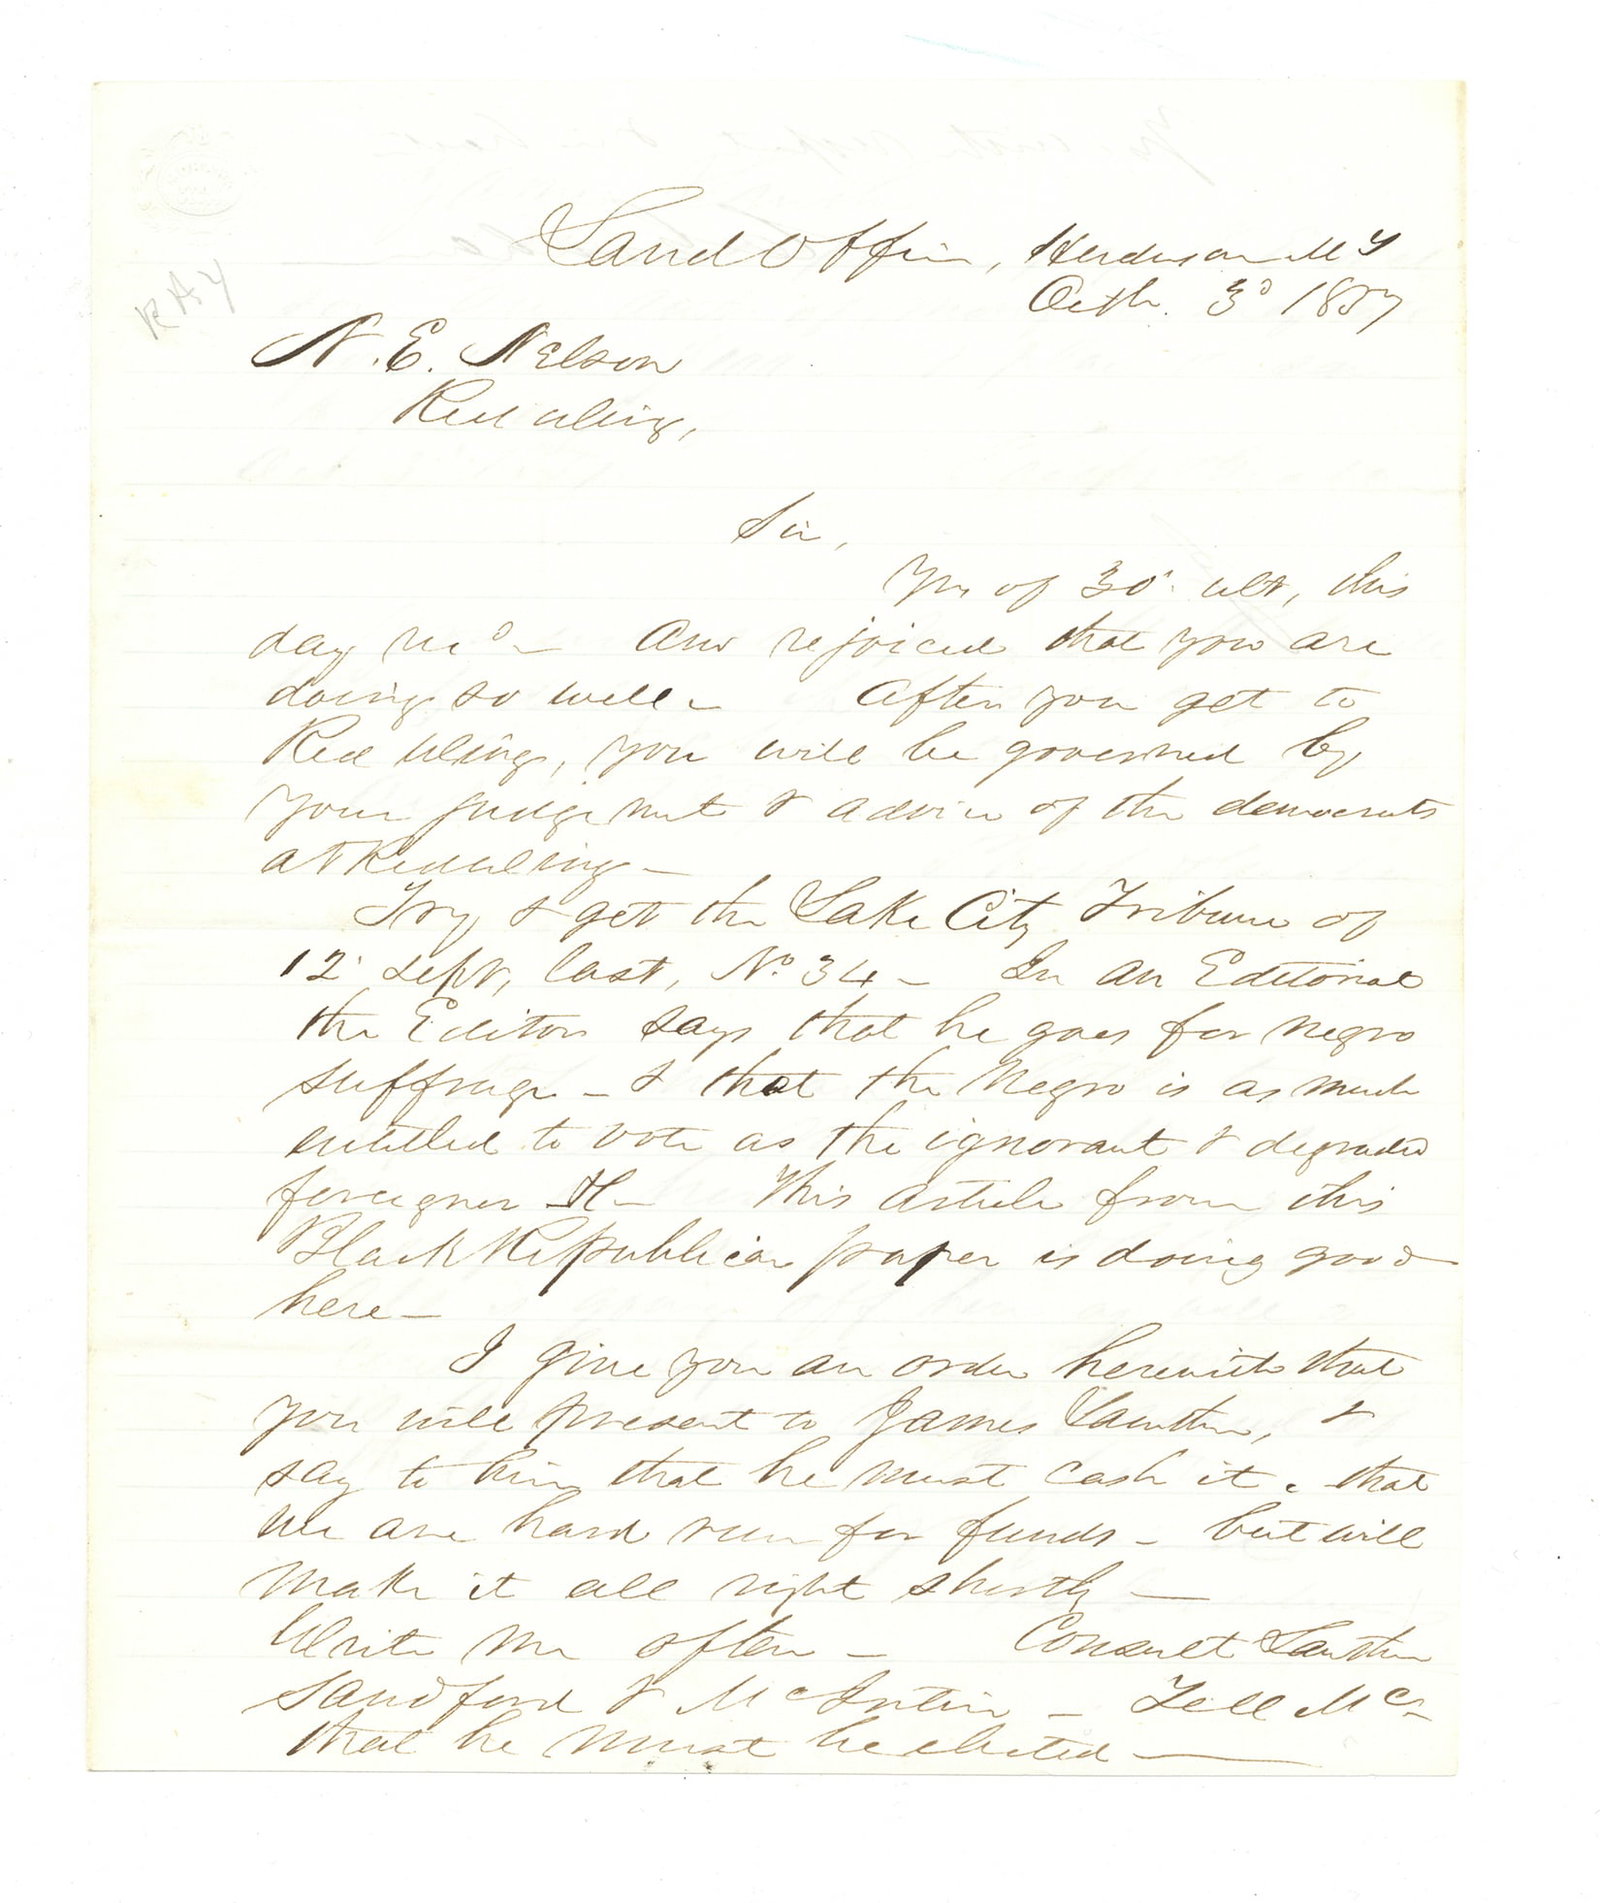 RAY
Land Office, Henderson M T
Octbr. 3d 1857
N. E. Nelson
Red Wing,
Sir,
Yrs of 30' ult, this
day recd – Am rejoiced that you are
doing so well – After you get to
Red Wing, you will be governed by
your judgement & advice of the democrats
at Red Wing –
Try & get the Lake City Tribune of
12' Sept, last, No. 34 – In an Editorial
the Editor says that he goes for negro
suffrage – & that the Negro is as much
entitled to vote as the ignorant & degraded
foreigner – This article from this
Black Republican paper is doing good
here –
I give you an order herewith that
you will present to James Lawther, &
say to him that he must cash it. that
we are hard run for funds – but will
make it all right shortly –
Write me often – Consult Lawther
Sandford & McIntire – Tell Mc –
that he must be elected –